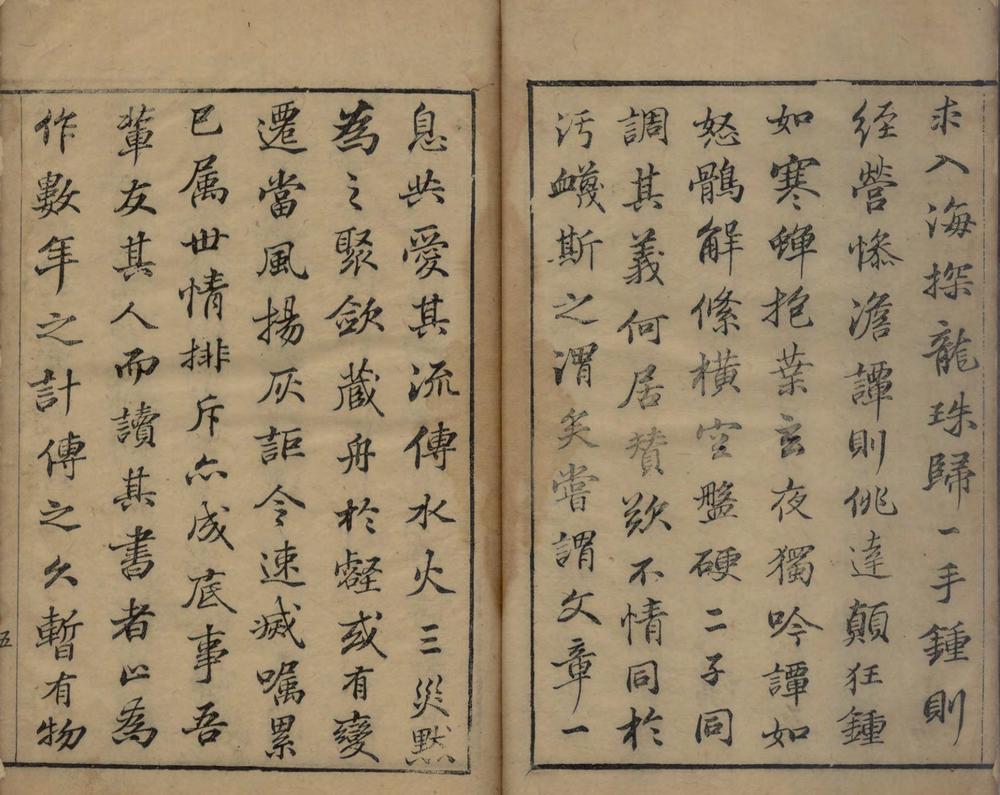 求入海探龍珠歸一手鍾則
經營慘澹譚則佻達顛狂鍾
如寒蟬抱葉玄夜獨吟譚如
怒鶻解絛橫空盤硬二子同
調其義何居贊歎不情同於
汚衊斯之謂矣嘗謂文章一
息共愛其流傳水火三災默
為之聚歛藏舟於壑或有變
遷當風揚灰詎令速滅嘱累
已属世情排斥亦成底事吾
輩友其人而讀其書者止為
作數年之計傳之久暫有物
五